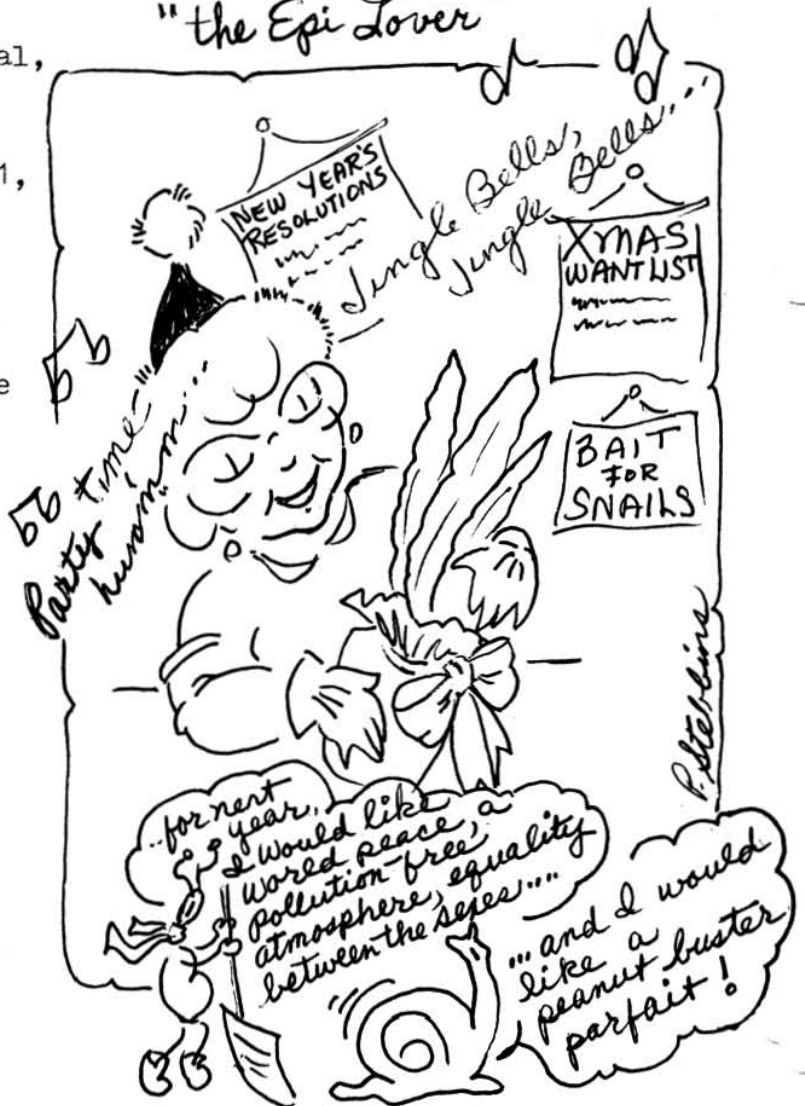 "the Epi Lover
al,
1,
e
NEW YEAR'S
RESOLUTIONS
Jingle Bells,
Jingle Bells...
XMAS
WANT LIST
BAIT
FOR
SNAILS
Party time
humm...
P. Stebbins
...for next
year,
I would like
world peace, a
pollution-free
atmosphere, equality
between the sexes....
...and I would
like a
peanut buster
parfait!